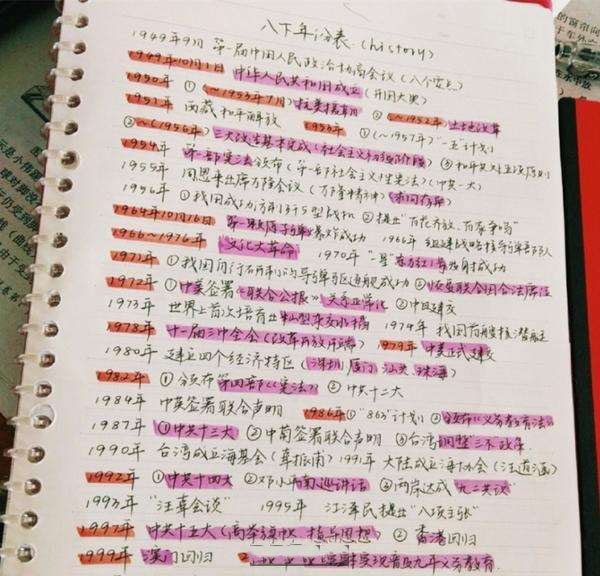 八下年份表 (history)
1949年9月 第一届中国人民政治协商会议(八个
1949年10月1日 中华人民共和国成立(开国大典)
1950年 ①(~1953年7月)抗美援朝 ②(~1952年)土地改革
1951年 西藏和平解放 1953年 ①(~1957年)一五计划
②~(1956年)三大改造基本完成(社会主义初级阶段) ③和平共处五项原则
1954年 第一部宪法颁布(第一部社会主义性宪法)(中共一大)
1955年 周恩来出席万隆会议(万隆精神)求同存异
1956年 ①我国成功仿制歼5型战机 ②提出"百花齐放、百家争鸣"
1964年10月16日 第一颗原子弹爆炸成功 1966年 组建战略导弹部队
1966~1976年 文化大革命 1970年 "一号"东方红一号发射成功
1971年 ①我国自行研制的导弹驱逐舰成功 ②恢复联合国合法席位
1972年 ①中美签署《联合公报》关系正常化 ②中日建交
1973年 世界上首次培育出籼型杂交水稻 1974年 我国首艘核潜艇
1978年 十一届三中全会(改革开放开端) 1979年 中美正式建交
1980年 建立四个经济特区(深圳 厦门 汕头 珠海)
1982年 ①颁布第四部《宪法》 ②中共十二大
1984年 中英签署联合声明 1986年 ①"863"计划 ②颁布《义务教育法》
1987年 ①中共十三大 ②中葡签署联合声明 ③台湾调整"三不"政策
1990年 台湾成立海基会(辜振甫) 1991年 大陆成立海协会(汪道涵)
1992年 ①中共十四大 ②邓小平南巡讲话 ③两岸达成"九二共识"
1993年 "汪辜会谈" 1995年 江泽民提出"八项主张"
1997年 中共十五大(高举旗帜 指导思想) ②香港回归
1999年 澳门回归 2 实现普及九年义务教育